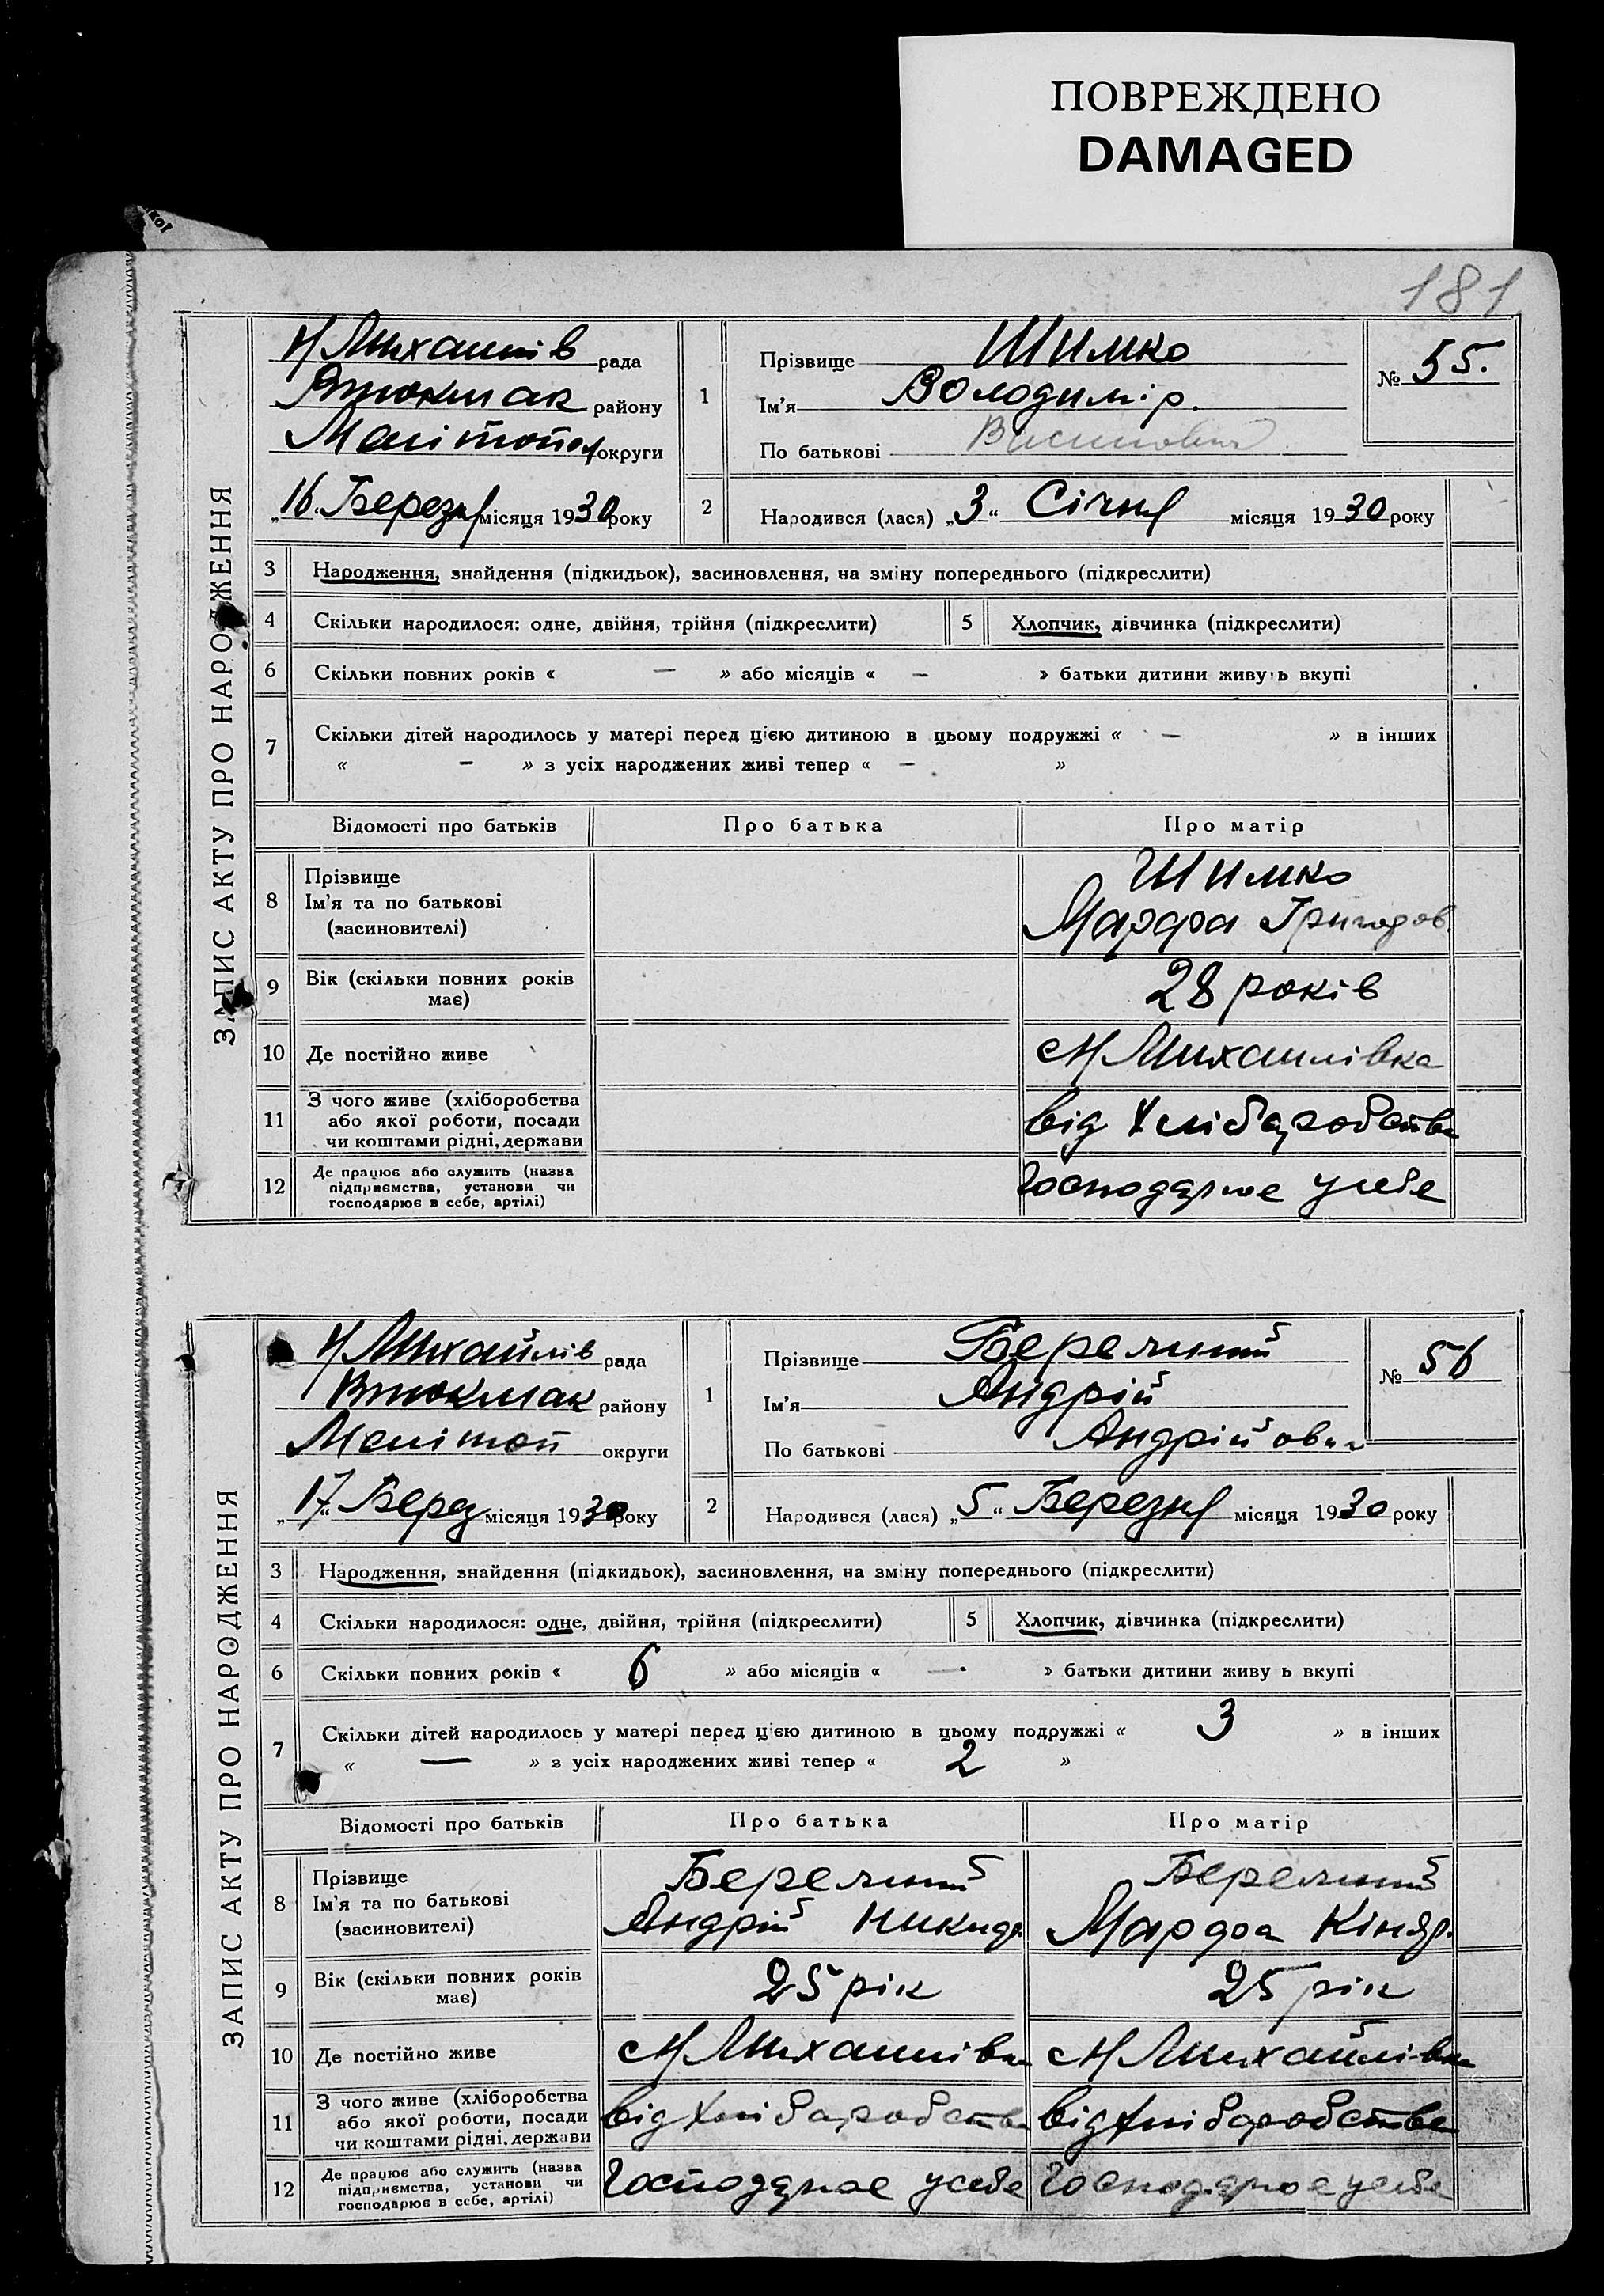 ПОВРЕЖДЕНО
DAMAGED
кої
181
ЗАПИС АКТУ ПРО НАРОДЖЕННЯ
Н Михайлів рада
Втокмак району
Мелітопол округи
„16“ Березня місяця 1930 року
1
Прізвище Шимко
Ім'я Володимір.
По батькові
№ 55.
2
Народився (лася) „3“ Січня місяця 1930 року
3 Народження, знайдення (підкидьок), засиновлення, на зміну попереднього (підкреслити)
4 Скільки народилося: одне, двійня, трійня (підкреслити)
5 Хлопчик, дівчинка (підкреслити)
6 Скільки повних років « — » або місяців « — » батьки дитини живуть вкупі
7 Скільки дітей народилось у матері перед цією дитиною в цьому подружжі « — » в інших
« — » з усіх народжених живі тепер « — »
Відомості про батьків Про батька Про матір
8 Прізвище
Ім'я та по батькові
(засиновителі)
Шимко
Марфа Григоров.
9 Вік (скільки повних років
має)
28 років
10 Де постійно живе
с Н Михайлівка
11 З чого живе (хліборобства
або якої роботи, посади
чи коштами рідні, держави
від Хліборобства
12 Де працює або служить (назва
підприємства, установи чи
господарює в себе, артілі)
Господарює усебе
ЗАПИС АКТУ ПРО НАРОДЖЕННЯ
Н Михайлів рада
Втокмак району
Мелітоп округи
„17“ Берез місяця 1930 року
1
Прізвище Беречний
Ім'я Андрій
По батькові Андрійович
№ 56
2
Народився (лася) „5“ Березня місяця 1930 року
3 Народження, знайдення (підкидьок), засиновлення, на зміну попереднього (підкреслити)
4 Скільки народилося: одне, двійня, трійня (підкреслити)
5 Хлопчик, дівчинка (підкреслити)
6 Скільки повних років « 6 » або місяців « — » батьки дитини живу ь вкупі
7 Скільки дітей народилось у матері перед цією дитиною в цьому подружжі « 3 » в інших
« — » з усіх народжених живі тепер « 2 »
Відомості про батьків Про батька Про матір
8 Прізвище
Ім'я та по батькові
(засиновителі)
Беречний
Андрій Никидр.
Беречний
Марфа Кіндр.
9 Вік (скільки повних років
має)
25 рік
25 рік
10 Де постійно живе
с Н Михайлівка
с Н Михайлівка
11 З чого живе (хліборобства
або якої роботи, посади
чи коштами рідні, держави
від хліборобства
від хліборобства
12 Де працює або служить (назва
підприємства, установи чи
господарює в себе, артілі)
Господарює усебе
Господарює усебе